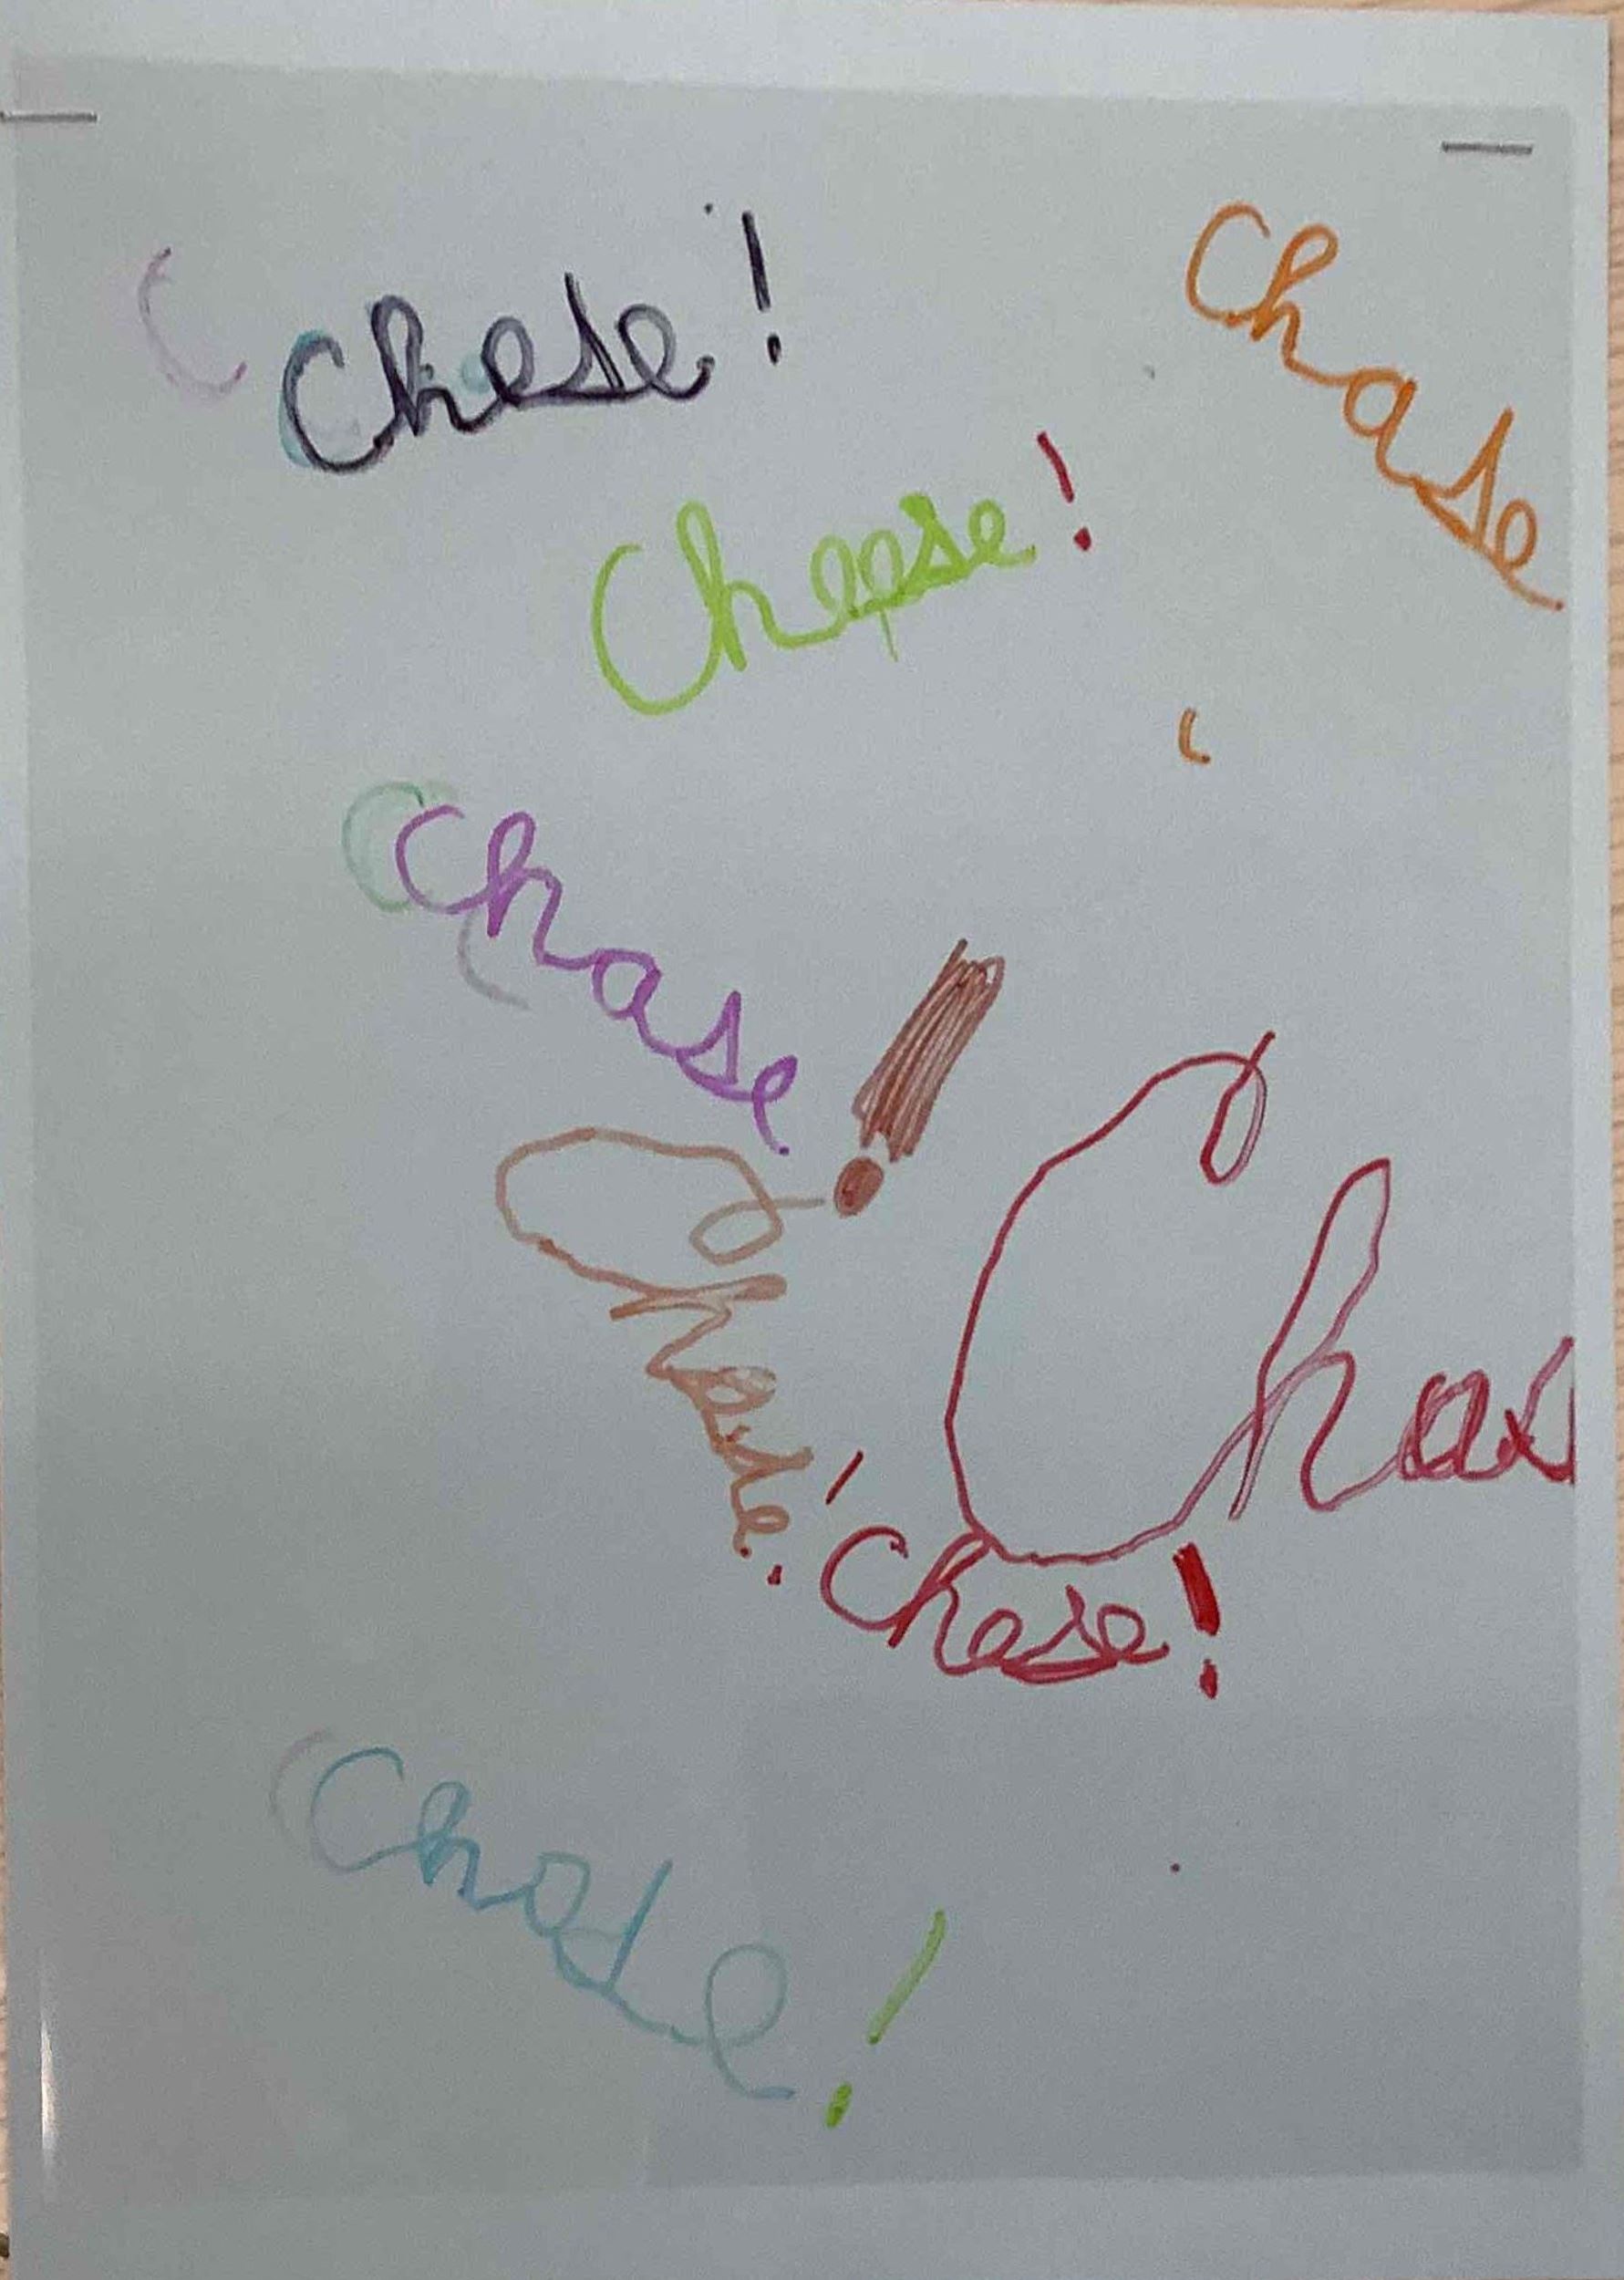 Chese!
Chase
Cheese!
Chase
Chese!
Chas
Chese!
Chase!